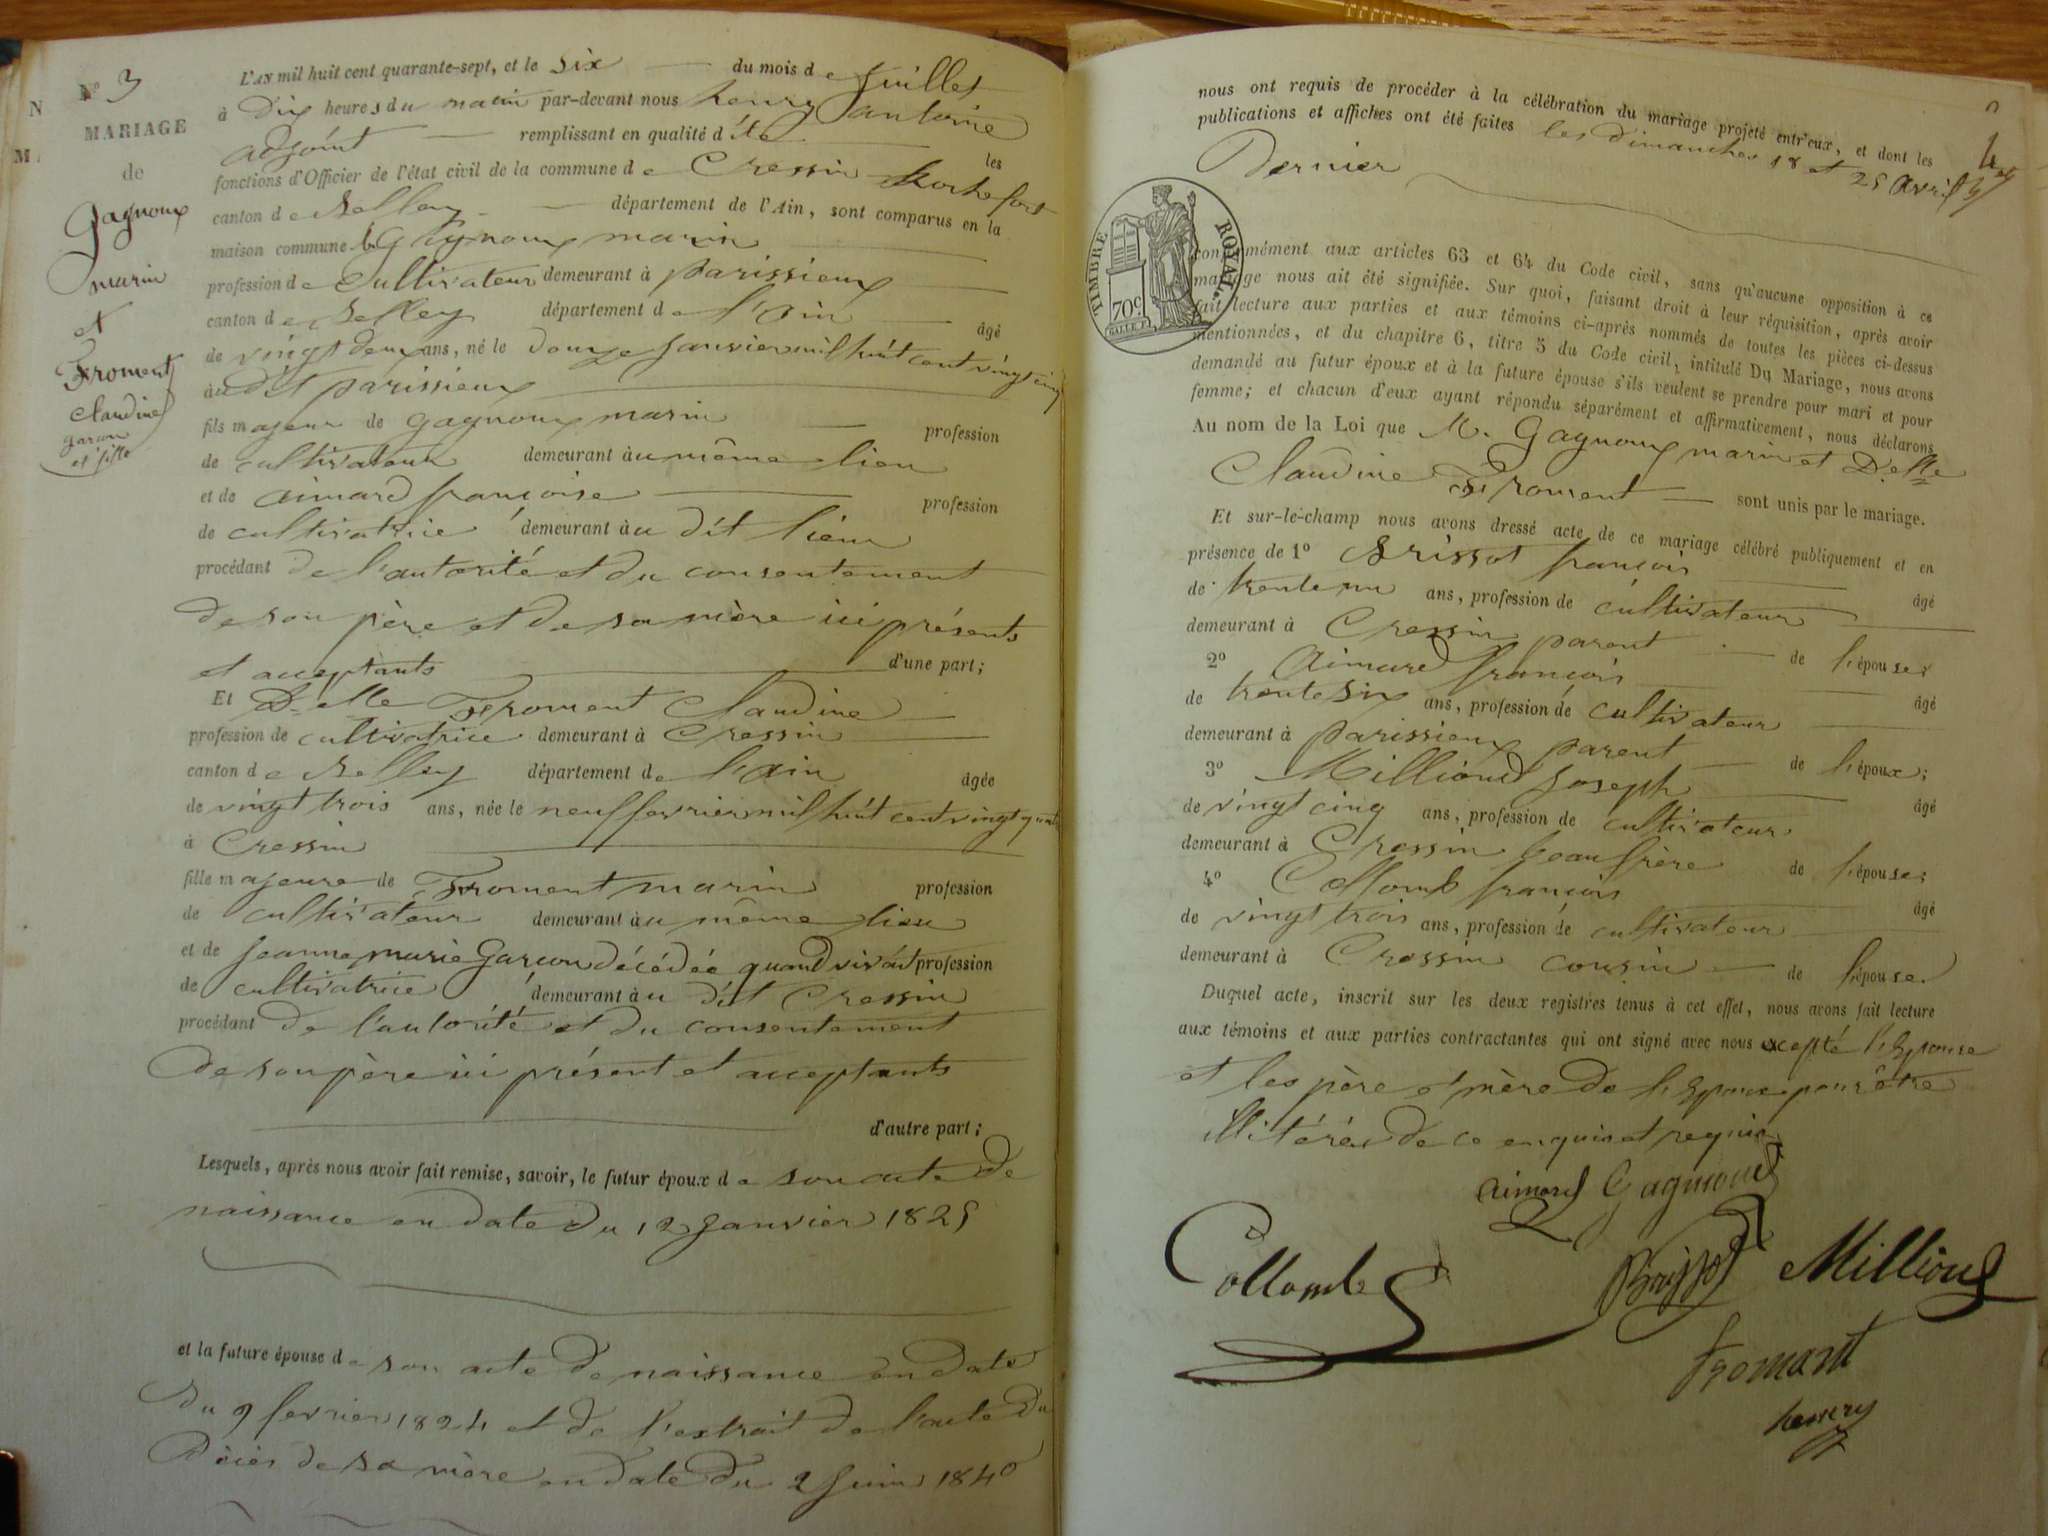 N° 3
MARIAGE
de
Gagnoux
marin
et
Froment
claudine
garçon
et fille
L'AN mil huit cent quarante-sept, et le six du mois de Juillet
à Dix heures du matin par-devant nous henry antoine
adjoint remplissant en qualité d'
les
fonctions d'Officier de l'état civil de la commune de Cressin Rochefort
canton de Belley département de l'Ain, sont comparus en la
maison commune Gagnoux marin
profession de Cultivateur demeurant à parissieux
canton de Belley département de l'Ain âgé
de vingt deux ans, né le Douze Janvier mil huit cent vingt cinq
au dit parissieux
fils majeur de gagnoux marin profession
de cultivateur demeurant au même lieu
et de aimard françoise profession
de cultivatrice demeurant au dit lieu
procédant de l'autorité et du consentement
de son père et de sa mère ici présents
et acceptants d'une part;
Et Delle Froment Claudine
profession de cultivatrice demeurant à Cressin
canton de Belley département de l'Ain âgée
de vingt trois ans, née le neuf fevrier mil huit cent vingt quatre
à Cressin
fille majeure de Froment marin profession
de cultivateur demeurant au même lieu
et de Jeanne marie Garçon décédée quand vivait profession
de cultivatrice demeurant au dit Cressin
procédant de l'autorité et du consentement
de son père ici présent et acceptants
d'autre part;
Lesquels, après nous avoir fait remise, savoir, le futur époux de son acte de
naissance en date du 12 Janvier 1825
et la future épouse de son acte de naissance en date
du 9 fevrier 1824 et de l'extrait de l'acte du
Décès de sa mère en date du 2 Juin 1840
nous ont requis de procéder à la célébration du mariage projeté entr'eux, et dont les
publications et affiches ont été faites les dimanches 18 et 25 avril
Dernier
TIMBRE ROYAL.
70c
conformément aux articles 63 et 64 du Code civil, sans qu'aucune opposition à ce
mariage nous ait été signifiée. Sur quoi, faisant droit à leur réquisition, après avoir
fait lecture aux parties et aux témoins ci-après nommés de toutes les pièces ci-dessus
mentionnées, et du chapitre 6, titre 5 du Code civil, intitulé Du Mariage, nous avons
demandé au futur époux et à la future épouse s'ils veulent se prendre pour mari et pour
femme; et chacun d'eux ayant répondu séparément et affirmativement, nous déclarons
Au nom de la Loi que M. Gagnoux marin et Delle
Claudine Froment sont unis par le mariage.
Et sur-le-champ nous avons dressé acte de ce mariage célébré publiquement et en
présence de 1° Brissot françois âgé
de trente un ans, profession de cultivateur
demeurant à Cressin parent de l'épouse;
2° Aimard françois âgé
de trente six ans, profession de cultivateur
demeurant à parissieux parent de l'époux;
3° Milliond Joseph âgé
de vingt cinq ans, profession de cultivateur
demeurant à Cressin beau frère de l'épouse;
4° Collomb françois âgé
de vingt trois ans, profession de cultivateur
demeurant à Cressin cousin de l'épouse.
Duquel acte, inscrit sur les deux registres tenus à cet effet, nous avons fait lecture
aux témoins et aux parties contractantes qui ont signé avec nous excepté l'Epouse
et les père et mère de l'Epoux pour être
illitérés de ce enquis et requis
aimard Gagnoux
Collomb Brissot Milliond
froment
henry